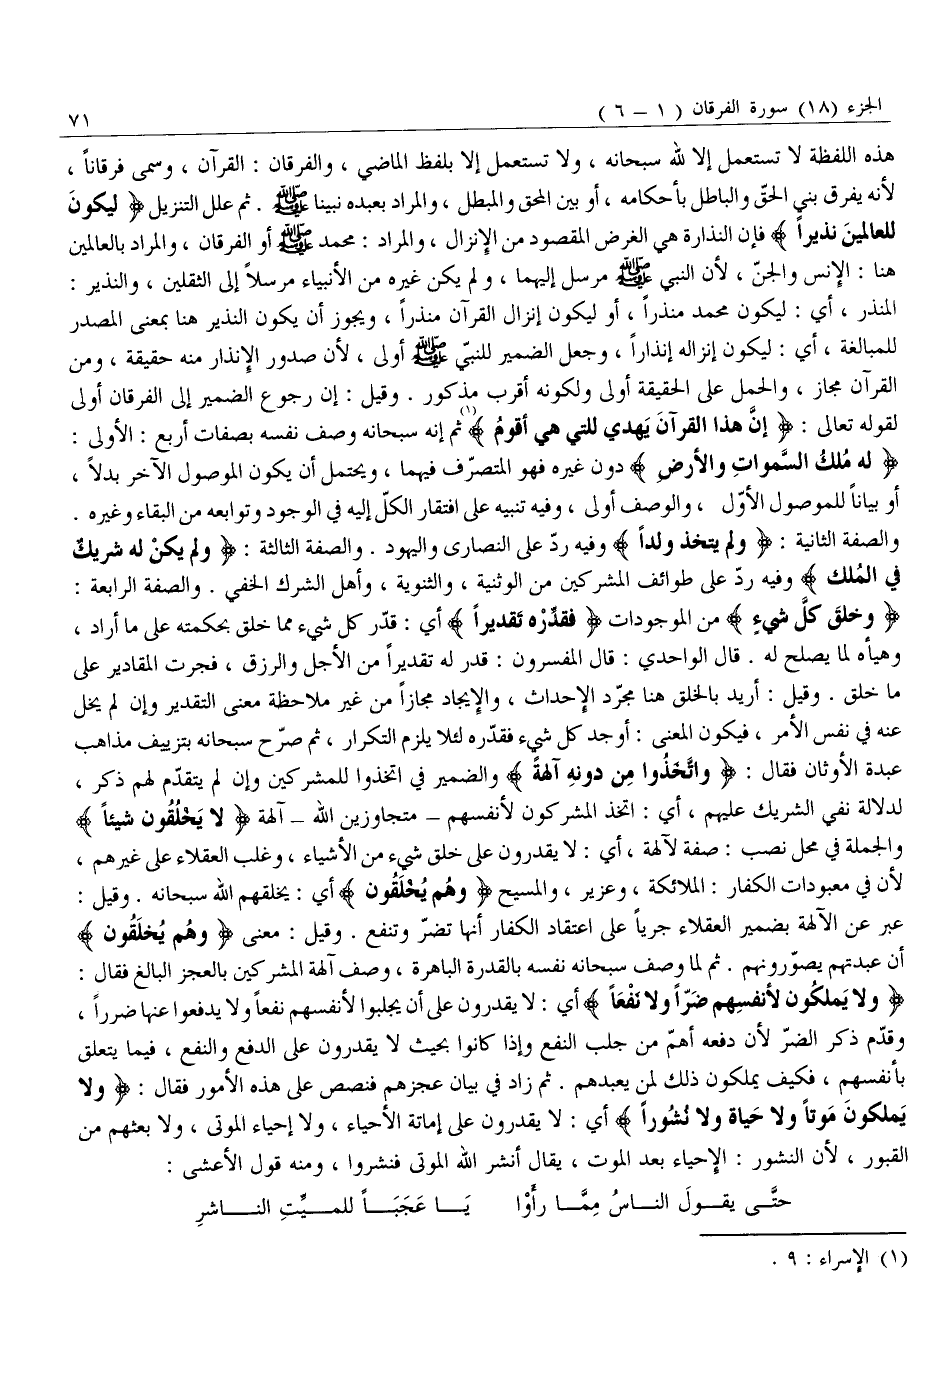 الجزء (١٨) سورة الفرقان ( ١ – ٦ ) ٧١
هذه اللفظة لا تستعمل إلا لله سبحانه ، ولا تستعمل إلا بلفظ الماضي ، والفرقان : القرآن ، وسمى فرقاناً ،
لأنه يفرق بني الحقّ والباطل بأحكامه ، أو بين المحق والمبطل ، والمراد بعبده نبينا ﷺ . ثم علل التنزيل ﴿ ليكونَ
للعالمينَ نذيراً ﴾ فإن النذارة هي الغرض المقصود من الإنزال ، والمراد : محمد ﷺ أو الفرقان ، والمراد بالعالمين
هنا : الإنس والجنّ ، لأن النبي ﷺ مرسل إليهما ، ولم يكن غيره من الأنبياء مرسلاً إلى الثقلين ، والنذير :
المنذر ، أي : ليكون محمد منذراً ، أو ليكون إنزال القرآن منذراً ، ويجوز أن يكون النذير هنا بمعنى المصدر
للمبالغة ، أي : ليكون إنزاله إنذاراً ، وجعل الضمير للنبيّ ﷺ أولى ، لأن صدور الإنذار منه حقيقة ، ومن
القرآن مجاز ، والحمل على الحقيقة أولى ولكونه أقرب مذكور . وقيل : إن رجوع الضمير إلى الفرقان أولى
لقوله تعالى : ﴿ إنَّ هذا القرآنَ يَهدي للتي هي أقومُ ﴾(١) ثم إنه سبحانه وصف نفسه بصفات أربع : الأولى :
﴿ له مُلكُ السَّمواتِ والأرضِ ﴾ دون غيره فهو المتصرّف فيهما ، ويحتمل أن يكون الموصول الآخر بدلاً ،
أو بياناً للموصول الأوّل ، والوصف أولى ، وفيه تنبيه على افتقار الكلّ إليه في الوجود وتوابعه من البقاء وغيره .
والصفة الثانية : ﴿ ولم يتخذ ولداً ﴾ وفيه ردّ على النصارى واليهود . والصفة الثالثة : ﴿ ولم يكنْ له شريكٌ
في المُلك ﴾ وفيه ردّ على طوائف المشركين من الوثنية ، والثنوية ، وأهل الشرك الخفي . والصفة الرابعة :
﴿ وخلقَ كلَّ شيءٍ ﴾ من الموجودات ﴿ فقدَّرْه تَقديراً ﴾ أي : قدّر كل شيء مما خلق بحكمته على ما أراد ،
وهيأه لما يصلح له . قال الواحدي : قال المفسرون : قدر له تقديراً من الأجل والرزق ، فجرت المقادير على
ما خلق . وقيل : أريد بالخلق هنا مجرّد الإحداث ، والإيجاد مجازاً من غير ملاحظة معنى التقدير وإن لم يخل
عنه في نفس الأمر ، فيكون المعنى : أوجد كل شيء فقدّره لئلا يلزم التكرار ، ثم صرّح سبحانه بتزييف مذاهب
عبدة الأوثان فقال : ﴿ واتَّخَذُوا مِن دونهِ آلهةً ﴾ والضمير في اتخذوا للمشركين وإن لم يتقدّم لهم ذكر ،
لدلالة نفي الشريك عليهم ، أي : اتخذ المشركون لأنفسهم – متجاوزين الله – آلهة ﴿ لا يَخْلُقُون شيئاً ﴾
والجملة في محل نصب : صفة لآلهة ، أي : لا يقدرون على خلق شيء من الأشياء ، وغلب العقلاء على غيرهم ،
لأن في معبودات الكفار : الملائكة ، وعزير ، والمسيح ﴿ وهُم يُخْلَقُون ﴾ أي : يخلقهم الله سبحانه . وقيل :
عبر عن الآلهة بضمير العقلاء جرياً على اعتقاد الكفار أنها تضرّ وتنفع . وقيل : معنى ﴿ وهُم يُخلَقُون ﴾
أن عبدتهم يصوّرونهم . ثم لما وصف سبحانه نفسه بالقدرة الباهرة ، وصف آلهة المشركين بالعجز البالغ فقال :
﴿ ولا يَملكُون لأنفسِهم ضَرّاً ولا نَفْعَاً ﴾ أي : لا يقدرون على أن يجلبوا لأنفسهم نفعاً ولا يدفعوا عنها ضرراً ،
وقدّم ذكر الضرّ لأن دفعه أهمّ من جلب النفع وإذا كانوا بحيث لا يقدرون على الدفع والنفع ، فيما يتعلق
بأنفسهم ، فكيف يملكون ذلك لمن يعبدهم . ثم زاد في بيان عجزهم فنصص على هذه الأمور فقال : ﴿ ولا
يَملكونَ مَوتاً ولا حَياة ولا نُشُوراً ﴾ أي : لا يقدرون على إماتة الأحياء ، ولا إحياء الموتى ، ولا بعثهم من
القبور ، لأن النشور : الإحياء بعد الموت ، يقال أنشر الله الموتى فنشروا ، ومنه قول الأعشى :
حتَّـى يقـولَ النـاسُ مِمَّـا رأَوْا يَـا عَجَبَـاً للمـيِّتِ النـاشرِ
(١) الإسراء : ٩ .